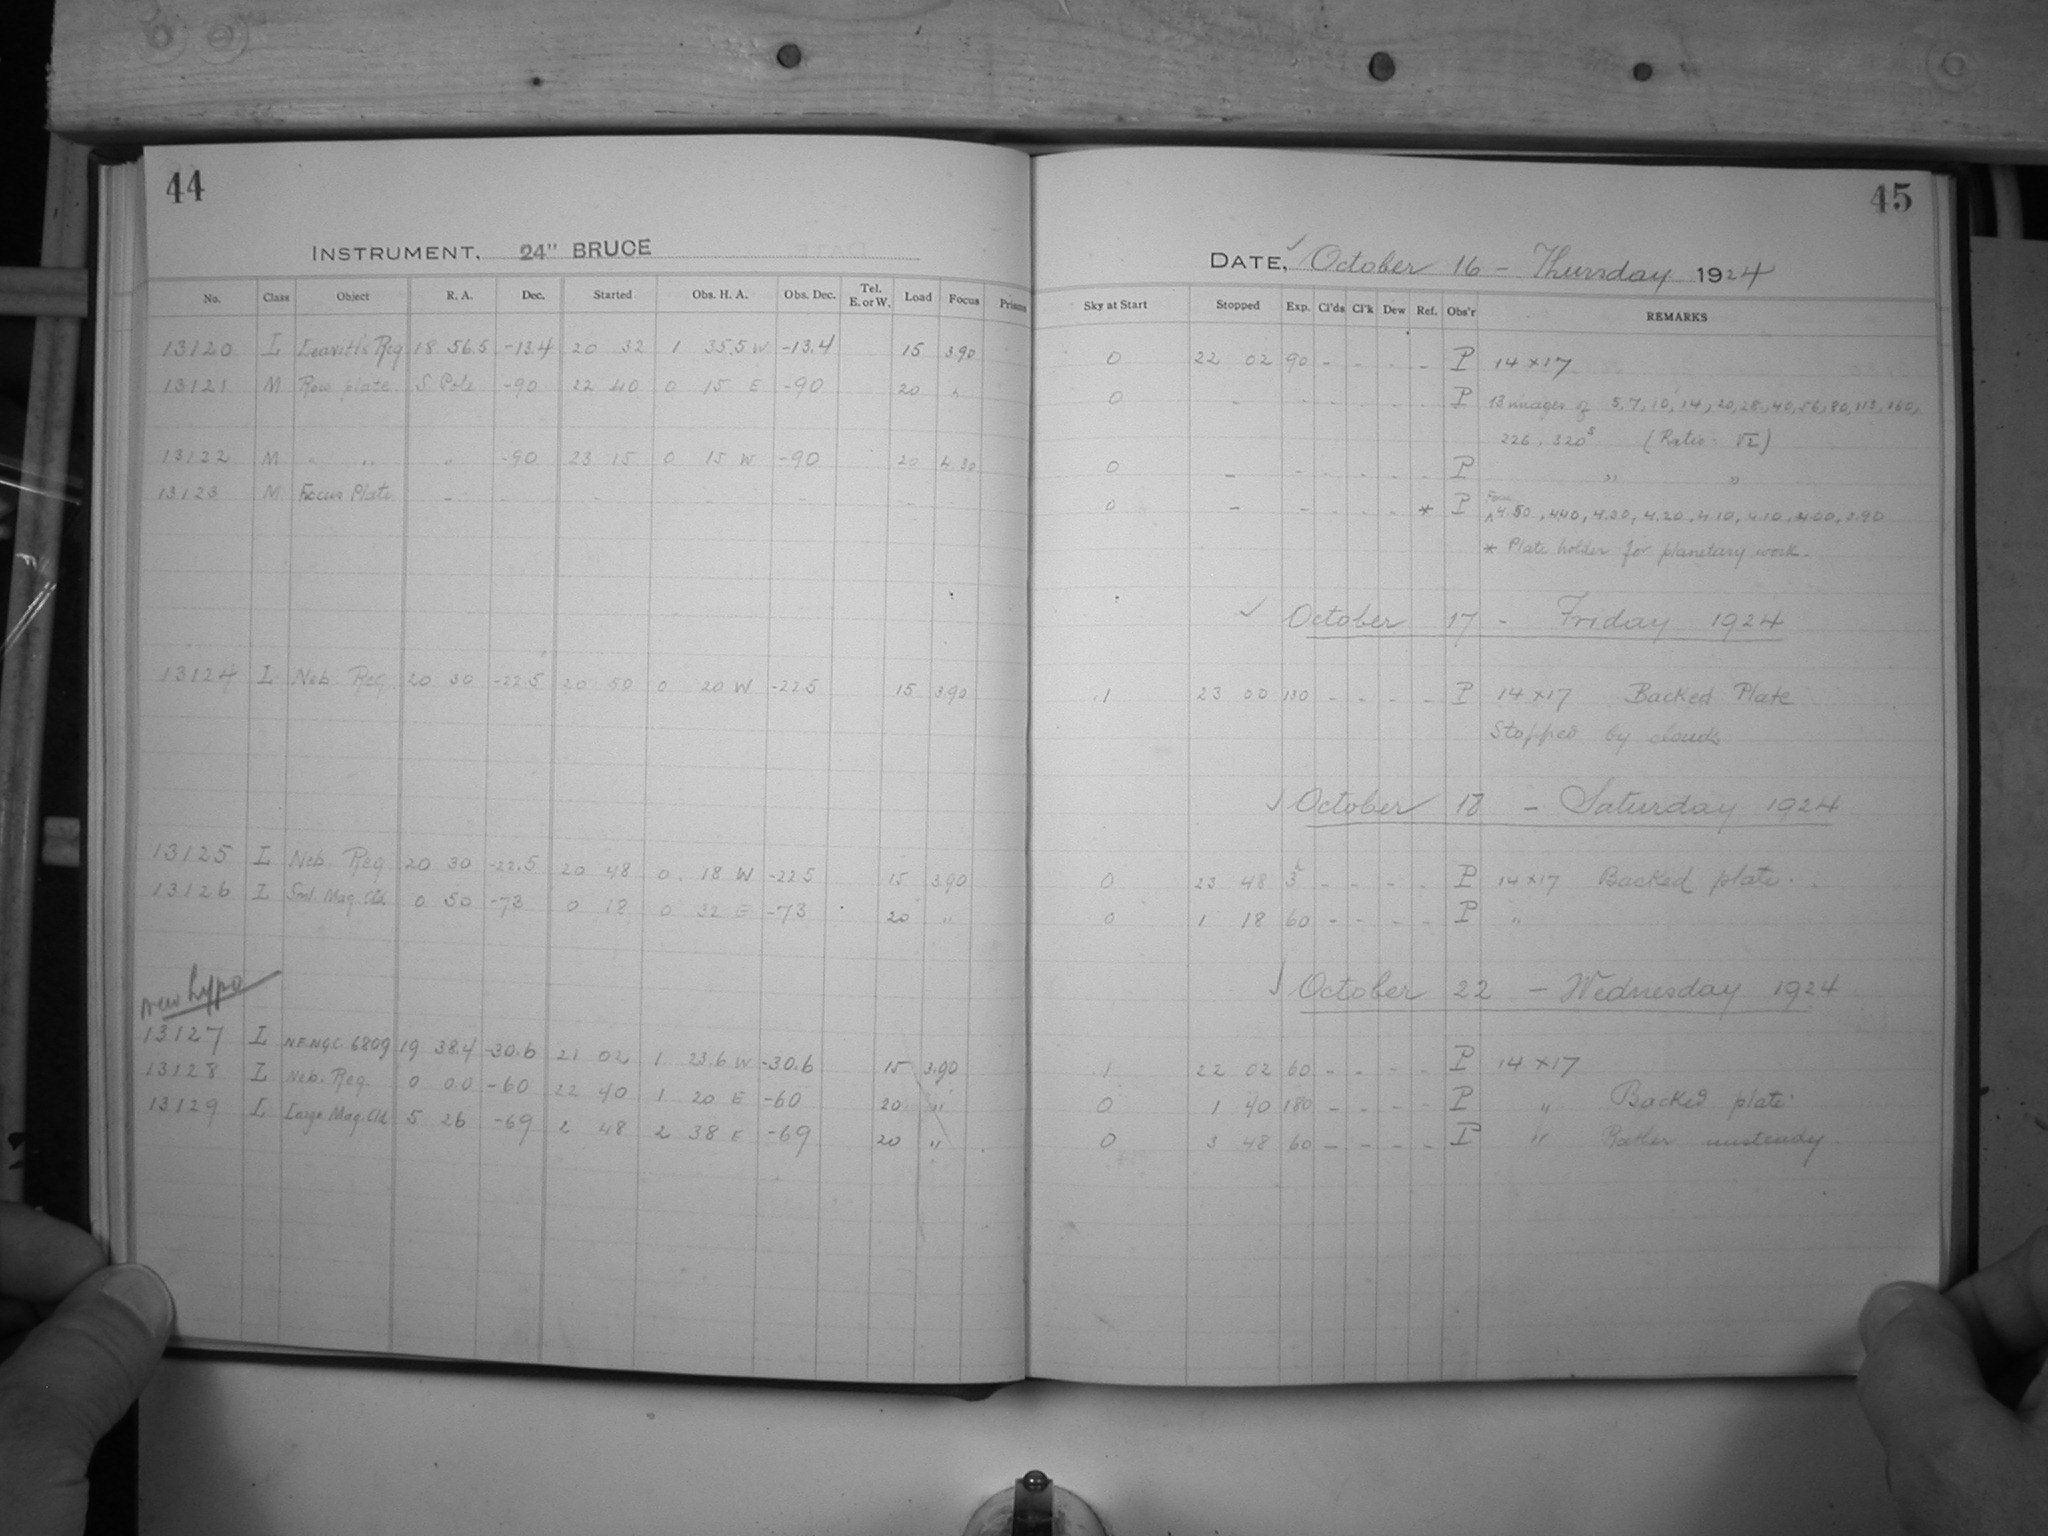 44
INSTRUMENT, 24" BRUCE
No. Class Object R. A. Dec. Started Obs. H. A. Obs. Dec. Tel. E. or W. Load Focus Prisms
13120 L Leavitt's Reg 18 56.5 -13.4 20 32 1 35.5 W -13.4 15 3.90
13121 M Row plate S. Pole -90 22 40 0 15 E -90 20 "
13122 M " " " -90 23 15 0 15 W -90 20 4.30
13123 M Focus Plate - - - - - - -
13124 L Neb. Reg. 20 30 -22.5 20 50 0 20 W -22.5 15 3.90
13125 L Neb. Reg 20 30 -22.5 20 48 0 18 W -22.5 15 3.90
13126 L Sml. Mag. Cld. 0 50 -73 0 18 0 32 E -73 20 "
New hypo
13127 L NF.NGC. 6809 19 38.4 -30.6 21 02 1 23.6 W -30.6 15 3.90
13128 L Neb. Reg. 0 0.0 -60 22 40 1 20 E -60 20 "
13129 L Large Mag. Cld 5 26 -69 2 48 2 38 E -69 20 "
45
DATE, ✓ October 16 - Thursday 1924
Sky at Start Stopped Exp. Cl'ds Cl'k Dew Ref. Obs'r REMARKS
0 22 02 90 - - - - P 14 x 17
0 - - - - - - P 13 images of 5, 7, 10, 14, 20, 28, 40, 56, 80, 113, 160,
226, 320s (Ratio: √2)
0 - - - - - - P " "
0 - - - - - * P Focus
^ 4.50, 4.40, 4.30, 4.20, 4.10, 4.10, 4.00, 3.90
* Plate holder for planetary work.
✓ October 17 - Friday 1924
.1 23 00 130 - - - - P 14 x 17 Backed Plate
Stopped by clouds
✓ October 18 - Saturday 1924
0 23 48 3h - - - - P 14 x 17 Backed plate.
0 1 18 60 - - - - P "
✓ October 22 - Wednesday 1924
.1 22 02 60 - - - - P 14 x 17
0 1 40 180 - - - - P " Backed plate
0 3 48 60 - - - - P " Rather unsteady.